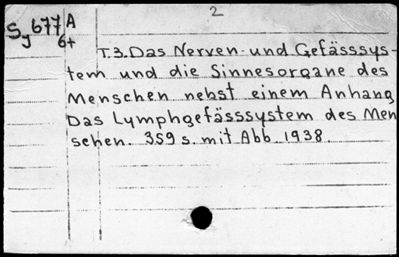 2
Sj 677 A
6+
T.3. Das Nerven- und Gefässsys-
tem und die Sinnesorgane des
Menschen nebst einem Anhang
Das Lymphgefässsystem des Men
schen. 359 s. mit Abb. 1938.